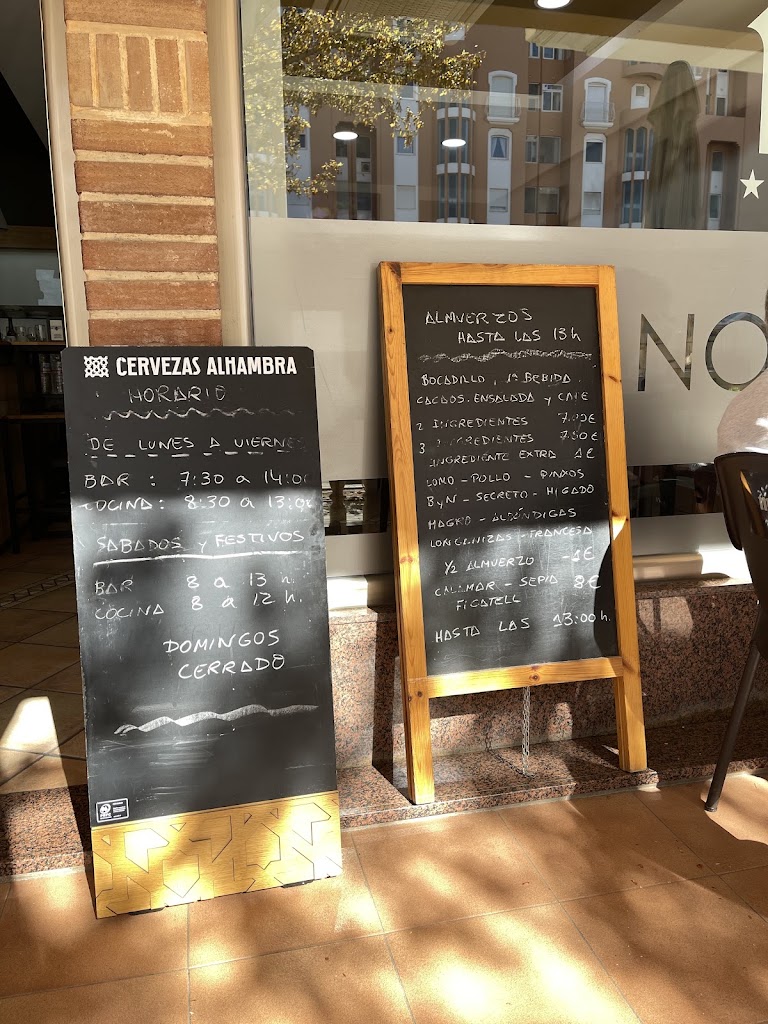 CERVEZAS ALHAMBRA
HORARIO
DE LUNES A VIERNES
BAR : 7:30 a 14:00
COCINA : 8:30 a 13:00
SABADOS y FESTIVOS
BAR 8 a 13 h.
COCINA 8 a 12 h.
DOMINGOS
CERRADO
ALMUERZOS
HASTA LAS 13 h
BOCADILLO, 1ª BEBIDA
CACAOS. ENSALADA y CAFE
2 INGREDIENTES 7.00€
3 INGREDIENTES 7.50€
INGREDIENTE EXTRA 1€
LOMO - POLLO - PINXOS
ByN - SECRETO - HIGADO
MAGRO - ALBÓNDIGAS
LONGANIZAS - FRANCESA
1/2 ALMUERZO
CALAMAR - SEPIA 8€
FIGATELL
HASTA LAS 13:00 h.
NO